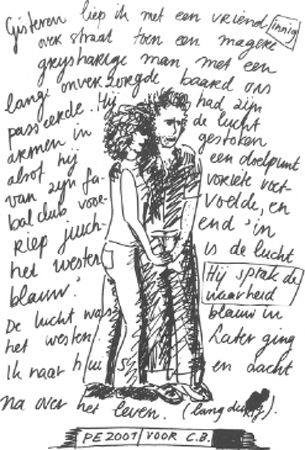 Gisteren liep ik met een vriend innig
over straat toen een magere
grijsharige man met een
lange onverzorgde baard ons
passeerde. Hij had zijn
armen in de lucht
gestoken
alsof hij een doelpunt
van zijn fa voriete voet
bal club voor voelde, en
riep juich end 'in
het westen is de lucht
blauw.' Hij sprak de
waarheid
De lucht was blauw in
het westen Later ging
Ik naar huis en dacht
na over het leven. (langdurig).
PE2001/VOOR C.B.